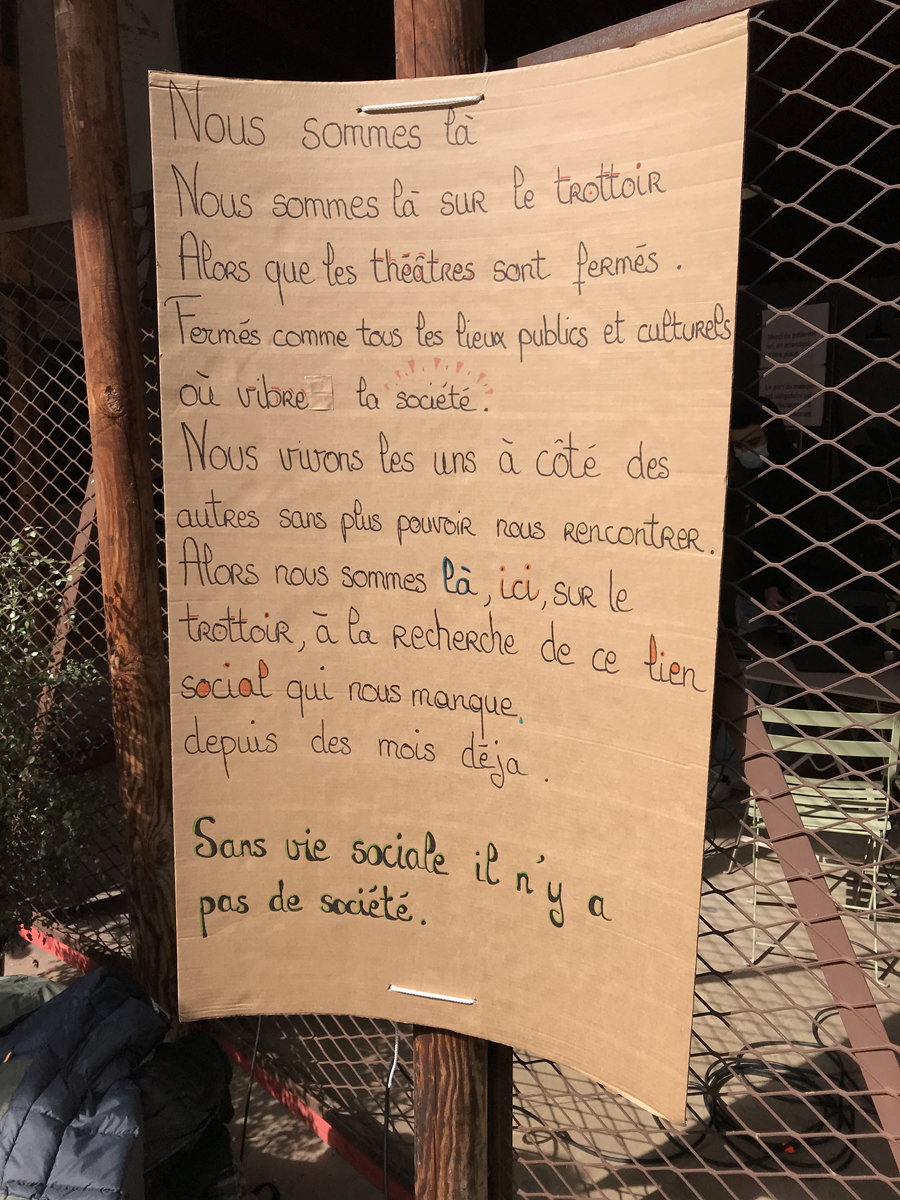 Nous sommes là
Nous sommes là sur le trottoir
Alors que les théâtres sont fermés.
Fermés comme tous les lieux publics et culturels
où vibre la société.
Nous vivons les uns à côté des
autres sans plus pouvoir nous rencontrer.
Alors nous sommes là, ici, sur le
trottoir, à la recherche de ce lien
social qui nous manque
depuis des mois déja.
Sans vie sociale il n'y a
pas de société.